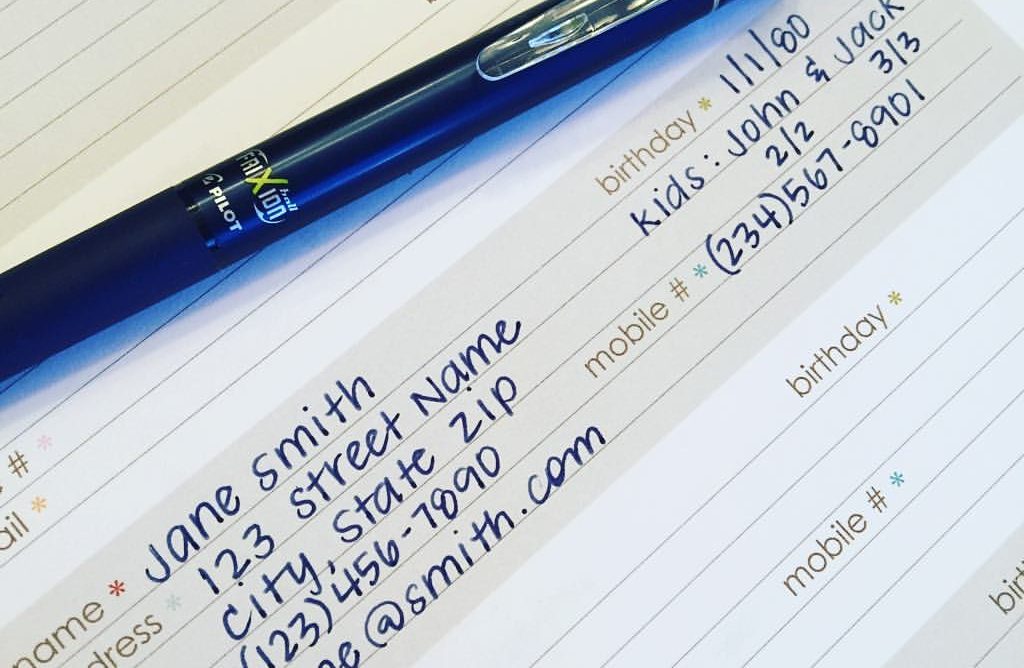 FRIXION ball
PILOT
birthday * 1/1/80
kids: John & Jack
2/2 3/3
mobile # * (234)567-8901
#*
ail *
name * Jane Smith
dress * 123 Street Name
City, State Zip
(123)456-7890
ne@smith.com
birthday *
mobile # *
birt